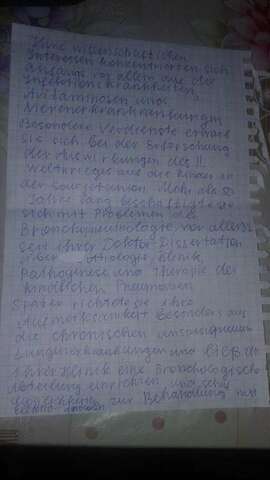 Ihre wissenschaftlichen
Interessen konzentrierten sich
vor allem auf die
Infektionskrankheiten,
und
Nierenerkrankungen
Besondere Verdienste
sie sich bei der Erforschung
der Auswirkungen des II
Weltkrieges auf die Kinder in
der Sowjetunion. Mehr als 50
Jahre lang beschäftigte sie
sich mit Problemen der
Bronchopneumologie vor allem
seit ihrer Doktor-Dissertation
über Klinik,
Pathogenese und Therapie der
kindlichen Pneumonien
Später richtete sie ihre
Aufmerksamkeit besonders auf
die chronischen
Lungenerkrankungen und ließ
ihrer Klinik eine Bronchologische
Abteilung einrichten und
zur Behandlung mit